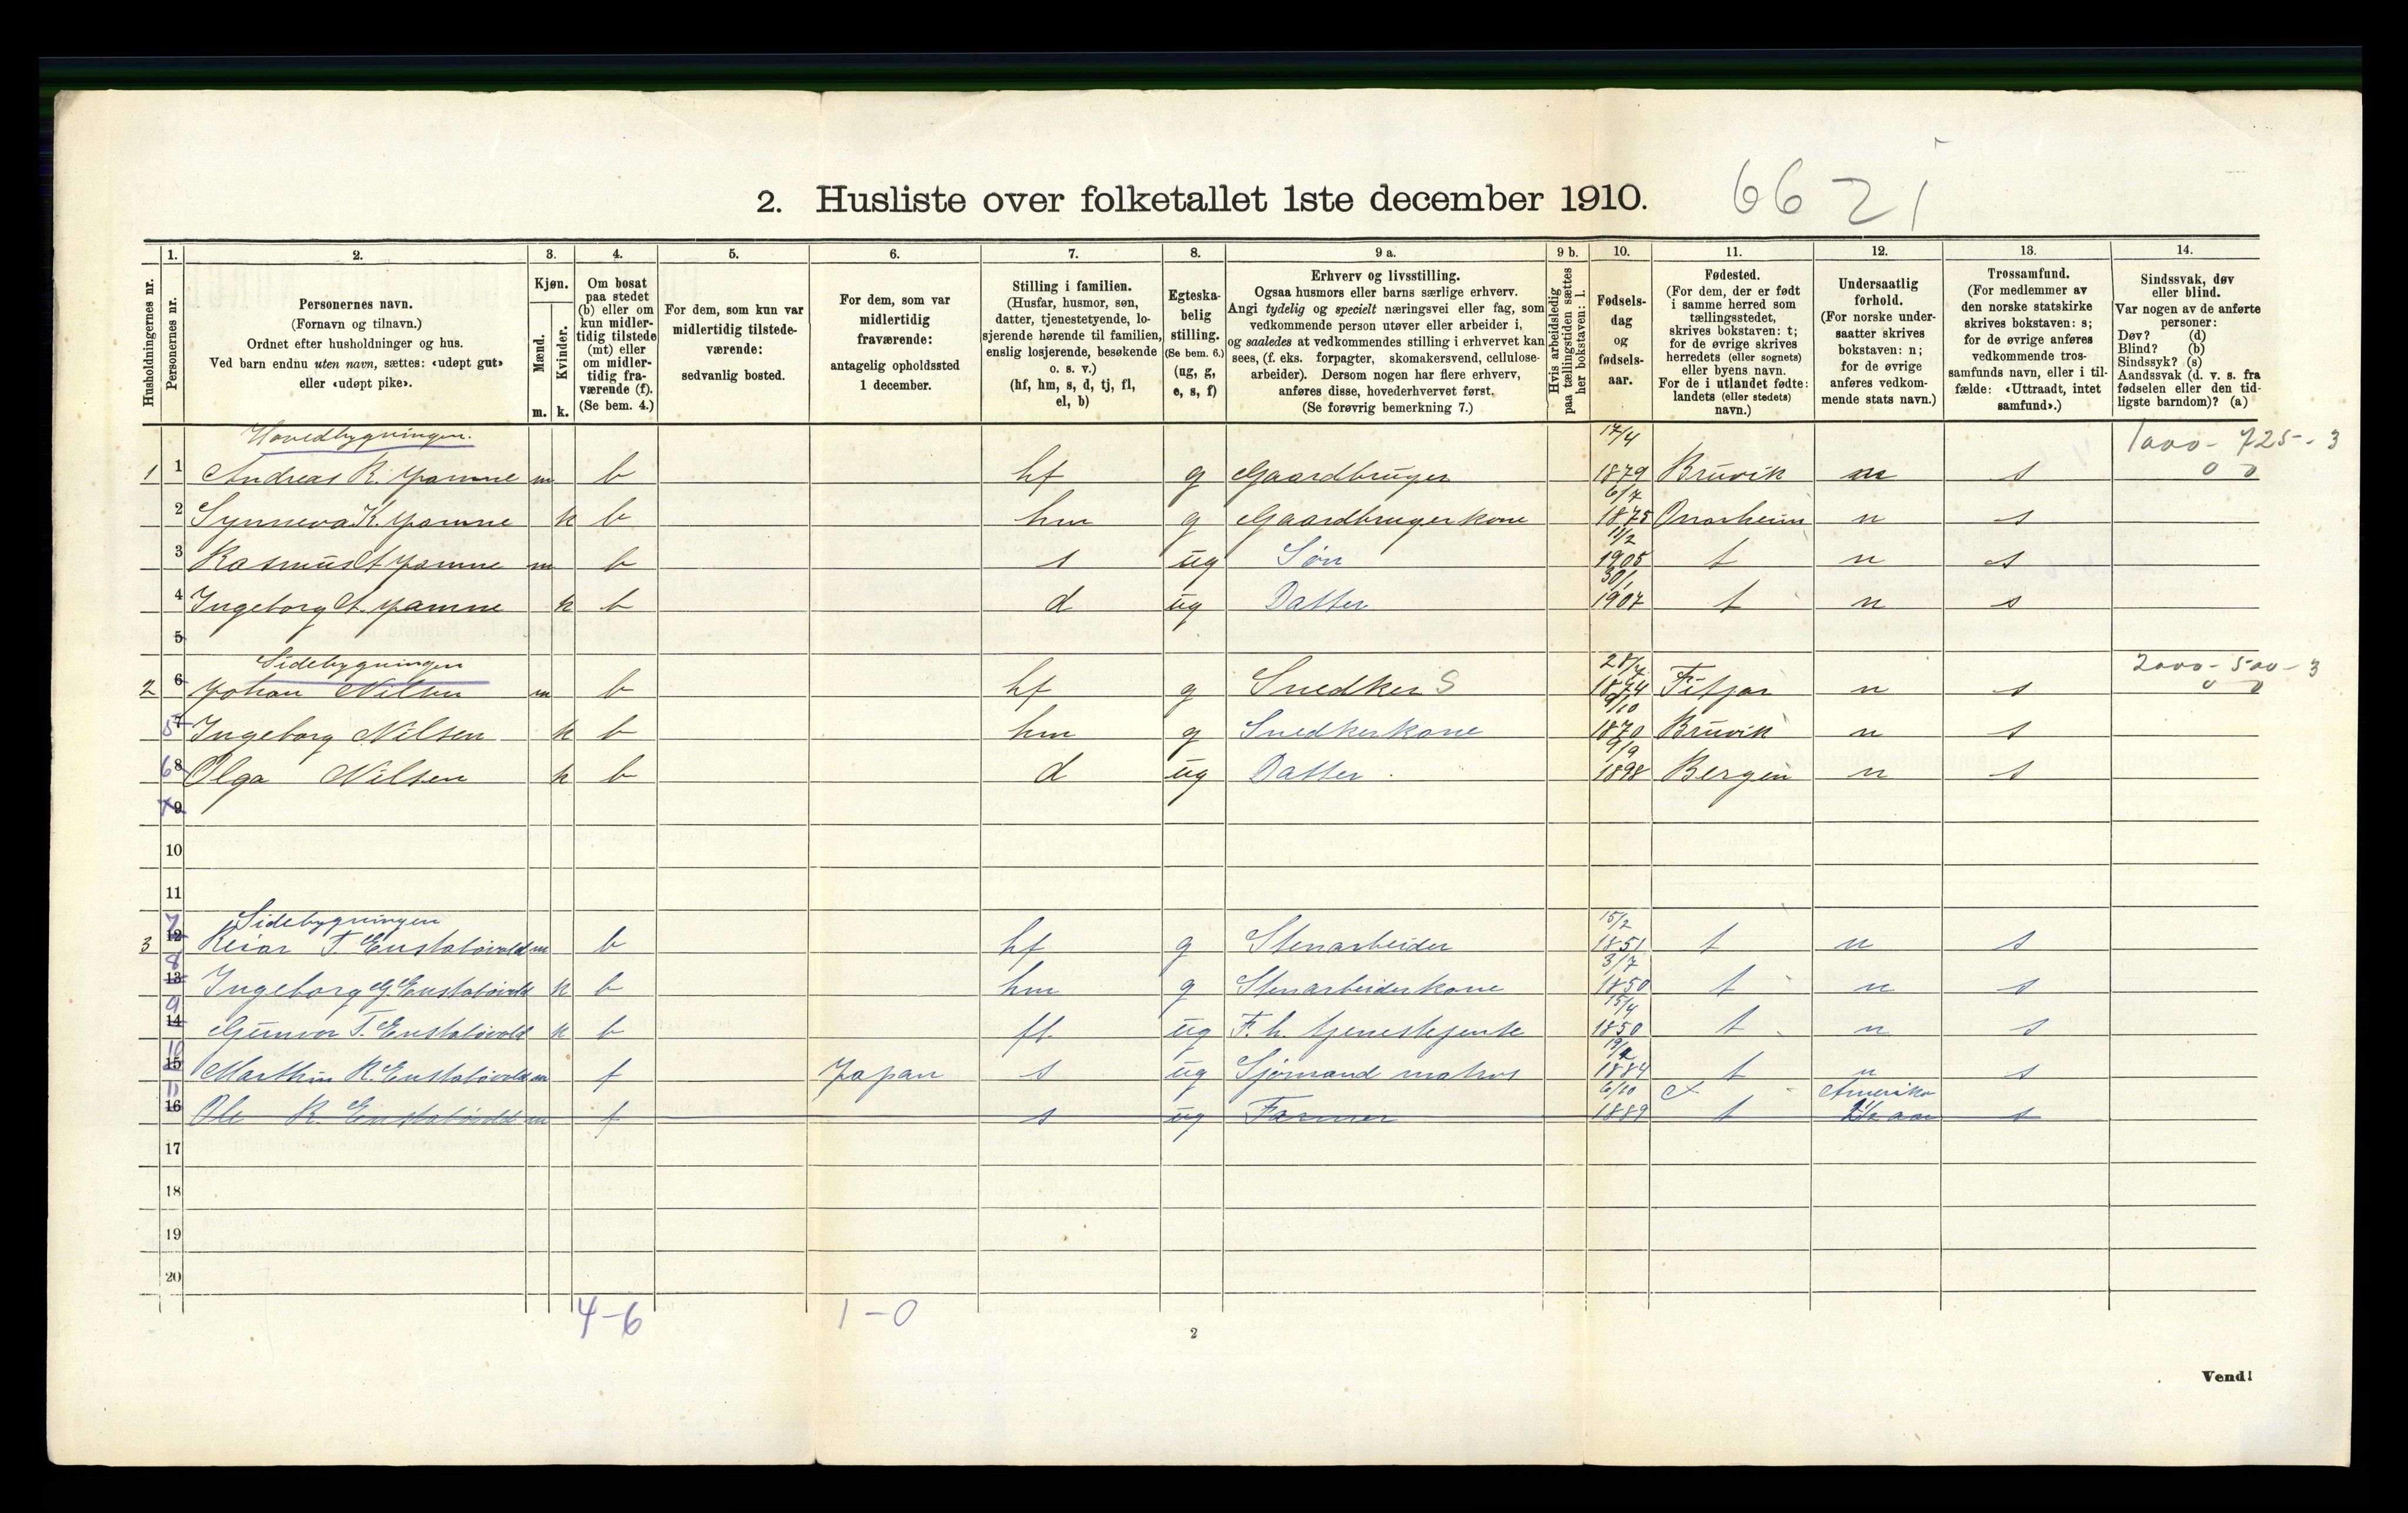 6621
2. Husliste over folketallet 1ste december 1910.
1. 2. 3. 4. 5. 6. 7. 8. 9 a. 9 b. 10. 11. 12. 13. 14.
Husholdningernes nr.
Personernes nr.
Personernes navn.
(Fornavn og tilnavn.)
Ordnet efter husholdninger og hus.
Ved barn endnu uten navn, sættes: «udøpt gut»
eller «udøpt pike».
Kjøn.
Mænd.
Kvinder.
m. k.
Om bosat
paa stedet
(b) eller om
kun midler-
tidig tilstede
(mt) eller
om midler-
tidig fra-
værende (f).
(Se bem. 4.)
For dem, som kun var
midlertidig tilstede-
værende:
sedvanlig bosted.
For dem, som var
midlertidig
fraværende:
antagelig opholdssted
1 december.
Stilling i familien.
(Husfar, husmor, søn,
datter, tjenestetyende, lo-
sjerende hørende til familien,
enslig losjerende, besøkende
o. s. v.)
(hf, hm, s, d, tj, fl,
el, b)
Egteska-
belig
stilling.
(Se bem. 6.)
(ug, g,
e, s, f)
Erhverv og livsstilling.
Ogsaa husmors eller barns særlige erhverv.
Angi tydelig og specielt næringsvei eller fag, som
vedkommende person utøver eller arbeider i,
og saaledes at vedkommendes stilling i erhvervet kan
sees, (f. eks. forpagter, skomakersvend, cellulose-
arbeider). Dersom nogen har flere erhverv,
anføres disse, hovederhvervet først.
(Se forøvrig bemerkning 7.)
Hvis arbeidsledig
paa tællingstiden sættes
her bokstaven: l.
Fødsels-
dag
og
fødsels-
aar.
Fødested.
(For dem, der er født
i samme herred som
tællingsstedet,
skrives bokstaven: t;
for de øvrige skrives
herredets (eller sognets)
eller byens navn.
For de i utlandet fødte:
landets (eller stedets)
navn.)
Undersaatlig
forhold.
(For norske under-
saatter skrives
bokstaven: n;
for de øvrige
anføres vedkom-
mende stats navn.)
Trossamfund.
(For medlemmer av
den norske statskirke
skrives bokstaven: s;
for de øvrige anføres
vedkommende tros-
samfunds navn, eller i til-
fælde: «Uttraadt, intet
samfund».)
Sindssvak, døv
eller blind.
Var nogen av de anførte
personer:
Døv? (d)
Blind? (b)
Sindssyk? (s)
Aandssvak (d. v. s. fra
fødselen eller den tid-
ligste barndom)? (a)
Hovedbygningen. 17/4 1000 - 725 - 3
1 1 Andreas R. m b hf g Gaardbruger 1879 Bruvik n s 0 0
6/7
2 Synneva K. k b hm g Gaardbrugerkone 1875 Onarheim n s
11/2
3 Rasmus A m b s ug Søn 1905 t n s
30/1
4 Ingeborg A. k b d ug Datter 1907 t n s
5
Sidebygningen 2000 - 500 - 3
2 6 Johan Nilsen m b hf g Snedker S 1874 Fitjar n s 0 0
9/10
5 7 Ingeborg Nilsen k b hm g Snedkerkone 1870 Bruvik n s
9/9
6 8 Olga Nilsen k b d ug Datter 1898 Bergen n s
7 9
10
11
7 Sidebygningen 15/2
3 12 T. m b hf g Stenarbeider 1851 t n s
8 3/7
13 Ingeborg G. k b hm g Stenarbeiderkone 1850 t n s
9 15/4
14 Gunvor T. k b fl ug F. h. tjenestejente 1850 t n s
10
15 Marthin R. m f Japan s ug Sjømand matros 1884 t n s
11 6/10 Amerika
16 Ole R. m f s ug Farmer 1889 t s
17
18
19
20
4-6 1-0
2
Vend!